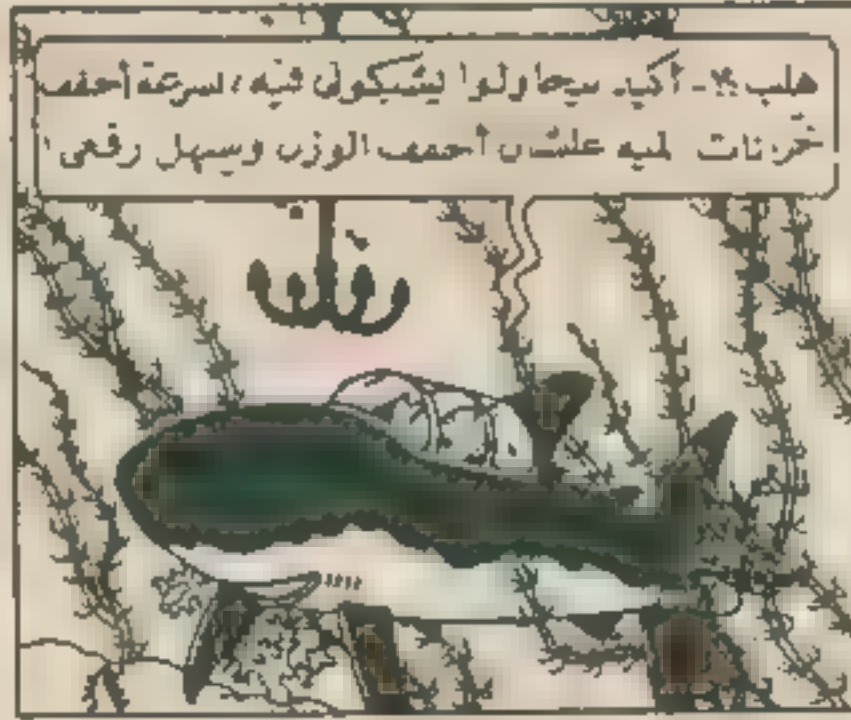 هلب ؟! - أكيد سيحاولوا يشبكوني فيه ، بسرعة أخفف
خزنات لميه علشان أخفف الوزن وسهل رفعى !